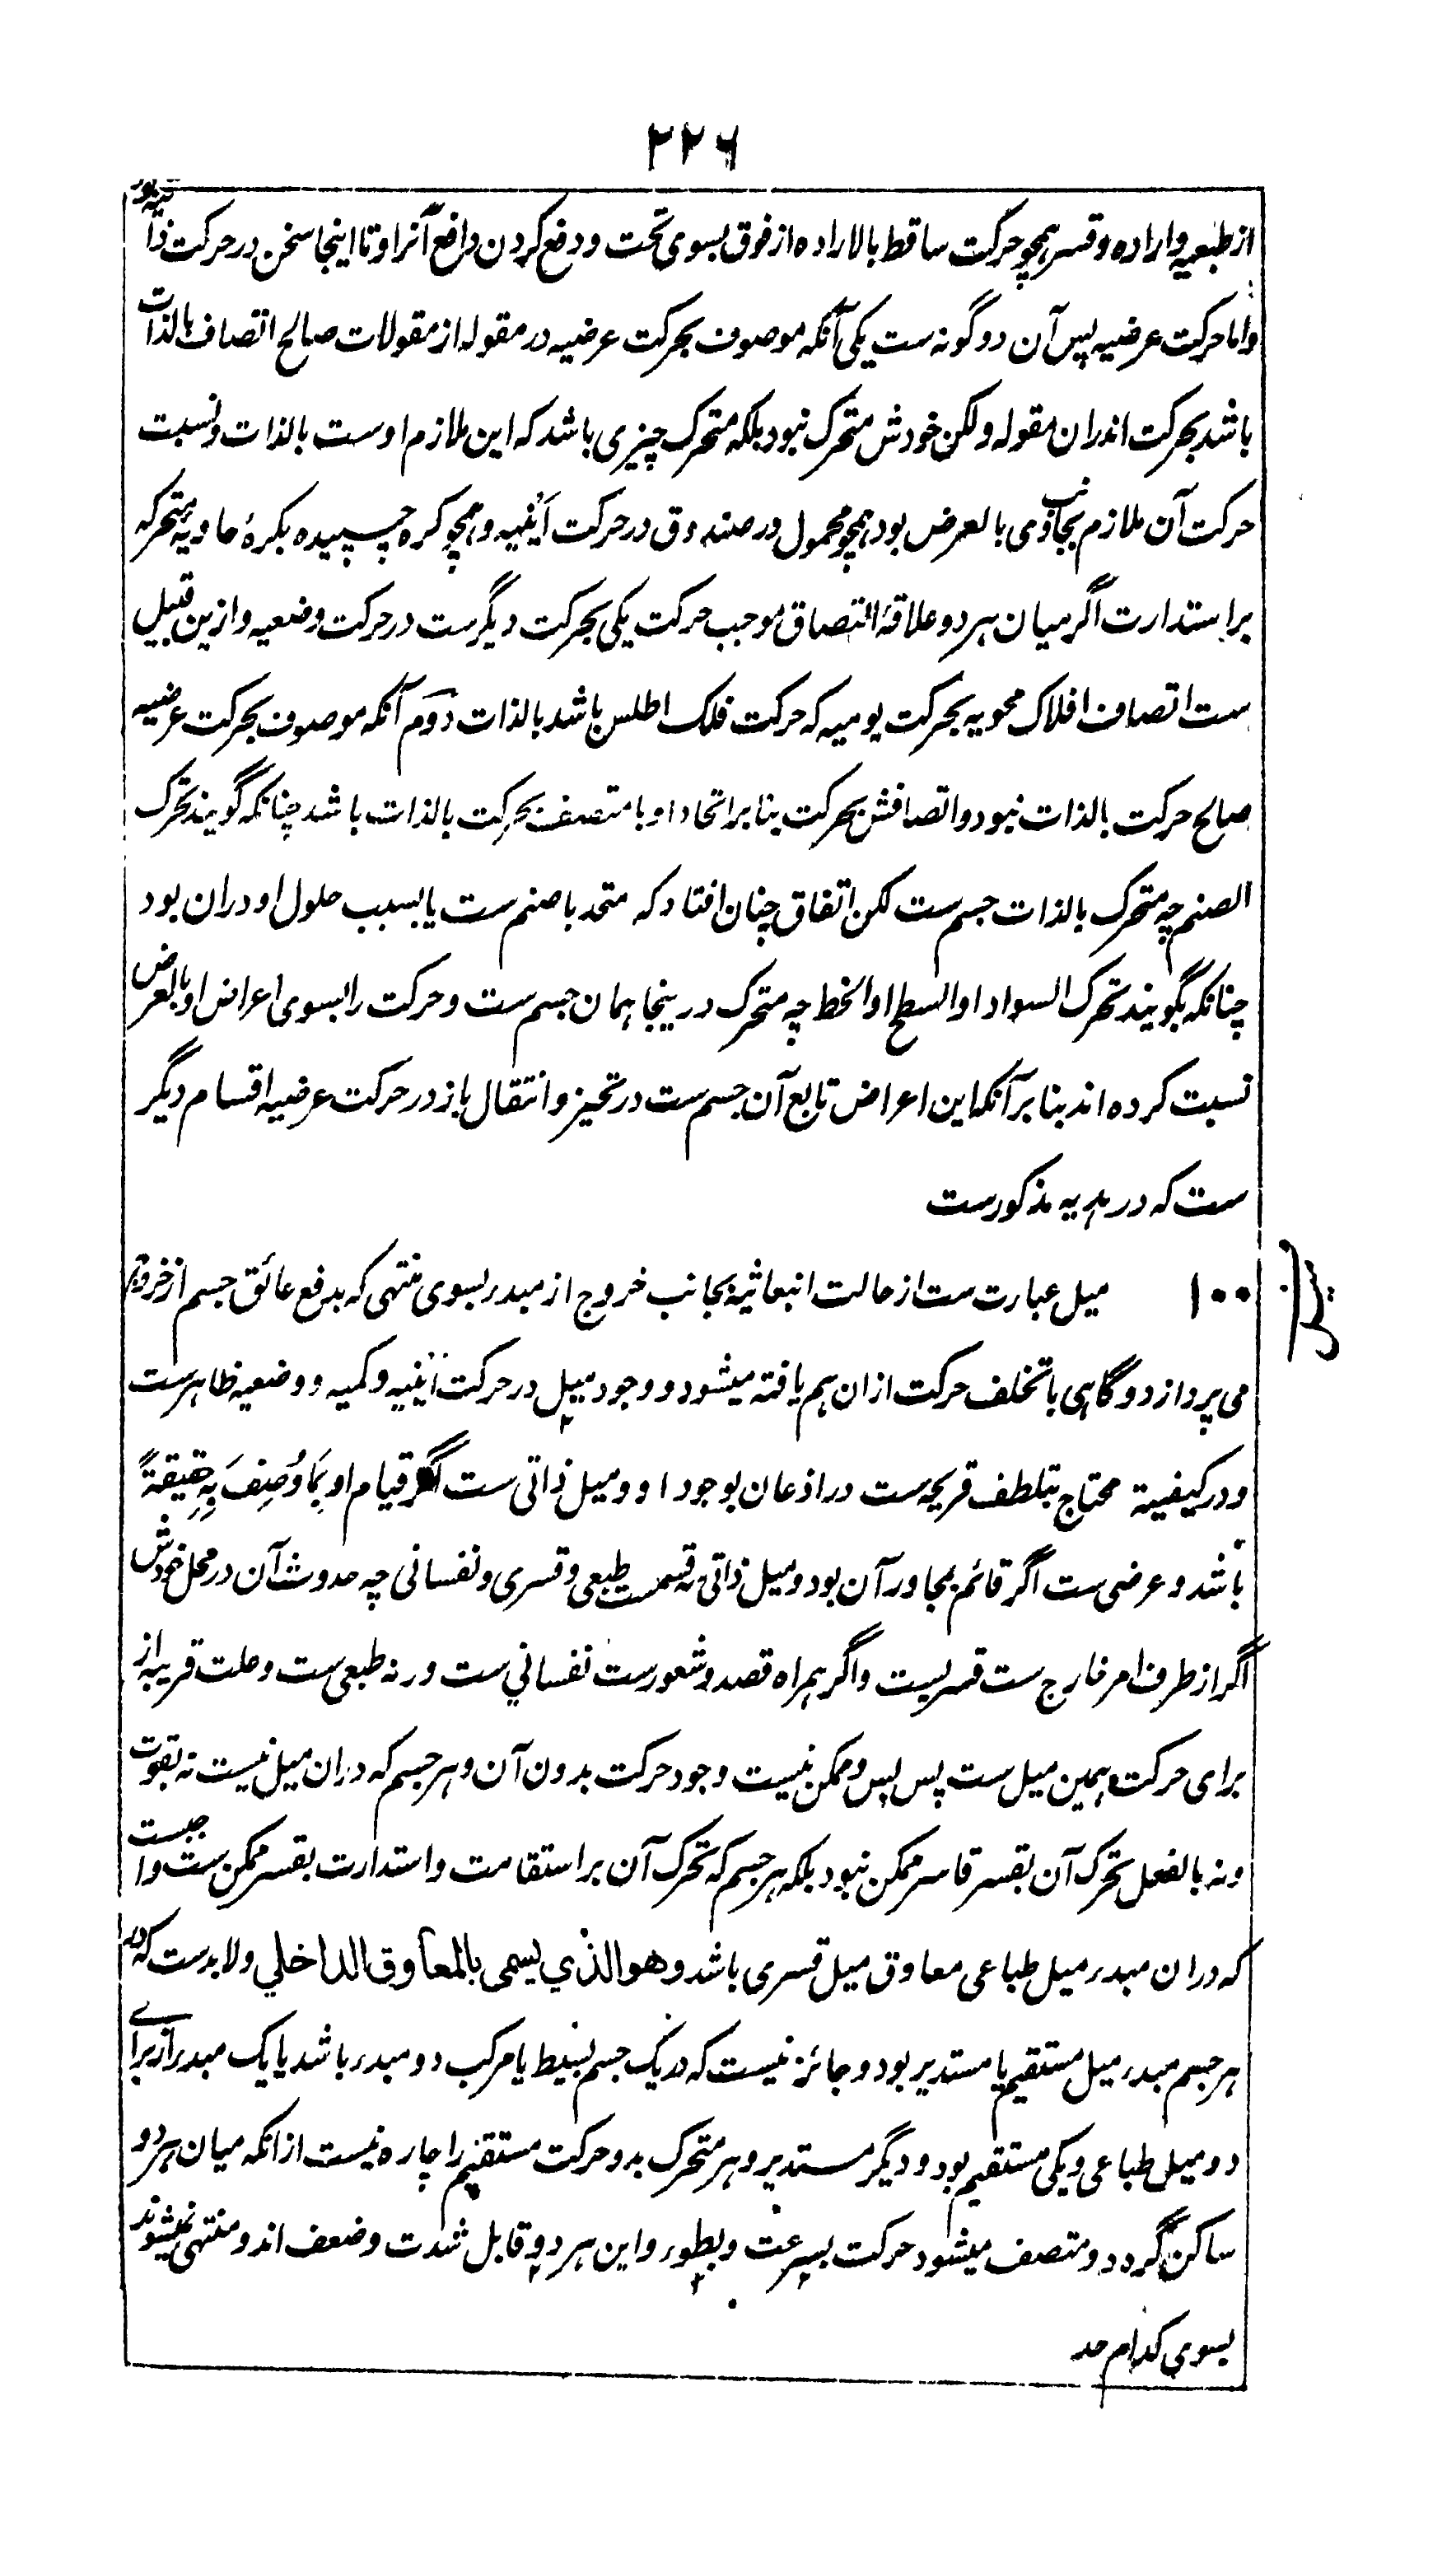 ۲۲۶
از طبعیه و اراده و قسر همچو حرکت ساقط بالاراده از فوق بسوی تحت و دفع کردن دافع آنرا و تا اینجا سخن در حرکت ذاتیه بود
واما حرکت عرضیه پس آن دو گونه ست یکی آنکه موصوف بحرکت عرضیه در مقوله از مقولات صالح اتصاف بالذات
باشد بحرکت اندران مقوله ولکن خودش متحرک نبود بلکه متحرک چیزی باشد که این ملازم اوست بالذات و نسبت
حرکت آن ملازم بجانب وی بالعرض بود همچو محمول در صندوق در حرکت اینیه و همچو کره چسپیده بکرهٔ حاویه متحرکه
بر استدارت اگر میان هر دو علاقهٔ التصاق موجب حرکت یکی بحرکت دیگرست در حرکت وضعیه و ازین قبیل
ست اتصاف افلاک محویه بحرکت یومیه که حرکت فلک اطلس باشد بالذات دوم آنکه موصوف بحرکت عرضیه
صالح حرکت بالذات نبود و اتصافش بحرکت بنا بر اتحاد او با متصف بحرکت بالذات باشد چنانکه گویند تحرک
الصنم چه متحرک بالذات جسم ست لکن اتفاق چنان افتاد که متحد با صنم ست یا بسبب حلول او دران بود
چنانکه بگویند تحرک السواد او السطح او الخط چه متحرک درینجا همان جسم ست و حرکت را بسوی اعراض او بالعرض
نسبت کرده اند بنا بر آنکه این اعراض تابع آن جسم ست در تحیز و انتقال باز در حرکت عرضیه اقسام دیگر
ست که در هدیه مذکورست
۱۰۰ میل عبارت ست از حالت انبعاثیه بجانب خروج از مبدء بسوی منتهی که بدفع عائق جسم از خروج
می پردازد و گاهی با تخلف حرکت ازان هم یافته میشود و وجود میل در حرکت اینیه و کمیه و وضعیه ظاهرست
و در کیفیة محتاج بتلطف قریحه ست در اذعان بوجود او و میل ذاتی ست اگر قیام او بِمَا وُصِفَ بِهِ حَقِیقَةً
باشد و عرضی ست اگر قائم بمجاور آن بود و میل ذاتی سه قسم ست طبعی و قسری و نفسانی چه حدوث آن در محل خودش
اگر از طرف امر خارج ست قسریست و اگر همراه قصد و شعورست نفسانی ست ورنه طبعی ست و علت قریبه از
برای حرکت همین میل ست پس پس و ممکن نیست وجود حرکت بدون آن و هر جسم که دران میل نیست نه بقوت
و نه بالفعل تحرک آن بقسر قاسر ممکن نبود بلکه هر جسم که تحرک آن بر استقامت و استدارت بقسر ممکن ست واجبست
که دران مبدء میل طباعی معاوق میل قسری باشد وهو الذي يسمى بالمعاوق الداخلي ولابدست که در
هر جسم مبدء میل مستقیم یا مستدیر بود و جائز نیست که در یک جسم بسیط یا مرکب دو مبدء باشد یا یک مبدء از برای
دو میل طباعی و یکی مستقیم بود و دیگر مستدیر و هر متحرک بدو حرکت مستقیم را چاره نیست ازانکه میان هر دو
ساکن گردد و متصف میشود حرکت بسرعت و بطوء و این هر دو قابل شدت و ضعف اند و منتهی نمیشوند
بسوی کدام حد
میل